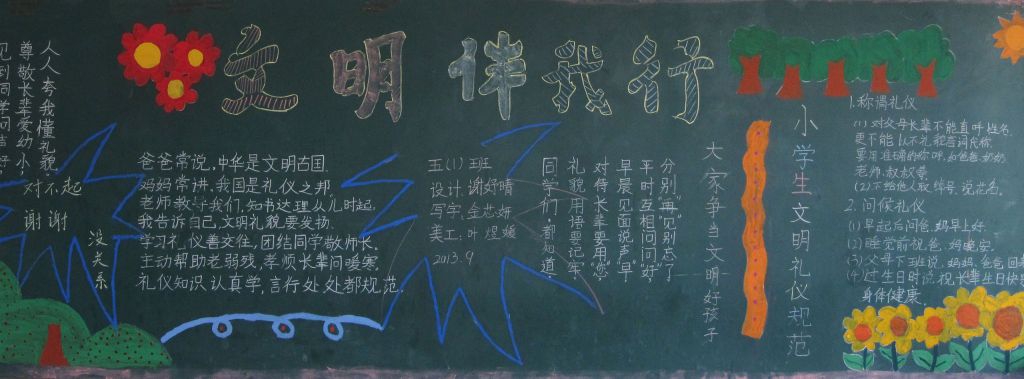 文明伴我行
人人夸我懂礼貌,
尊敬长辈爱幼小,
见到同学问声好,
对不起
谢谢
没关系
爸爸常说,中华是文明古国.
妈妈常讲,我国是礼仪之邦.
老师教导我们,知书达理从儿时起.
我告诉自己,文明礼貌要发扬.
学习礼仪善交往,团结同学敬师长.
主动帮助老弱残,孝顺长辈问暖寒.
礼仪知识认真学,言行处处都规范.
五(1)班
设计:谢妤晴
写字:金芯妍
美工:叶煜媛
2013.9
同学们,都知道,
礼貌用语要记牢,
对待长辈要用"您"
早晨见面说声"早"
平时互相"问问好",
分别"再见"别忘了
大家争当文明好孩子
小学生文明礼仪规范
1.称谓礼仪
(1)对父母长辈不能直呼姓名.
更不能以不礼貌言词代称
要用准确的称呼,如爸爸、奶奶、
老师、叔叔等
(2)不给他人取绰号、说花名.
2.问候礼仪
(1)早起后问爸、妈早上好
(2)睡觉前祝爸、妈晚安.
(3)父母下班说,妈妈、爸爸回来
(4)过生日时说,祝长辈生日快乐
身体健康.